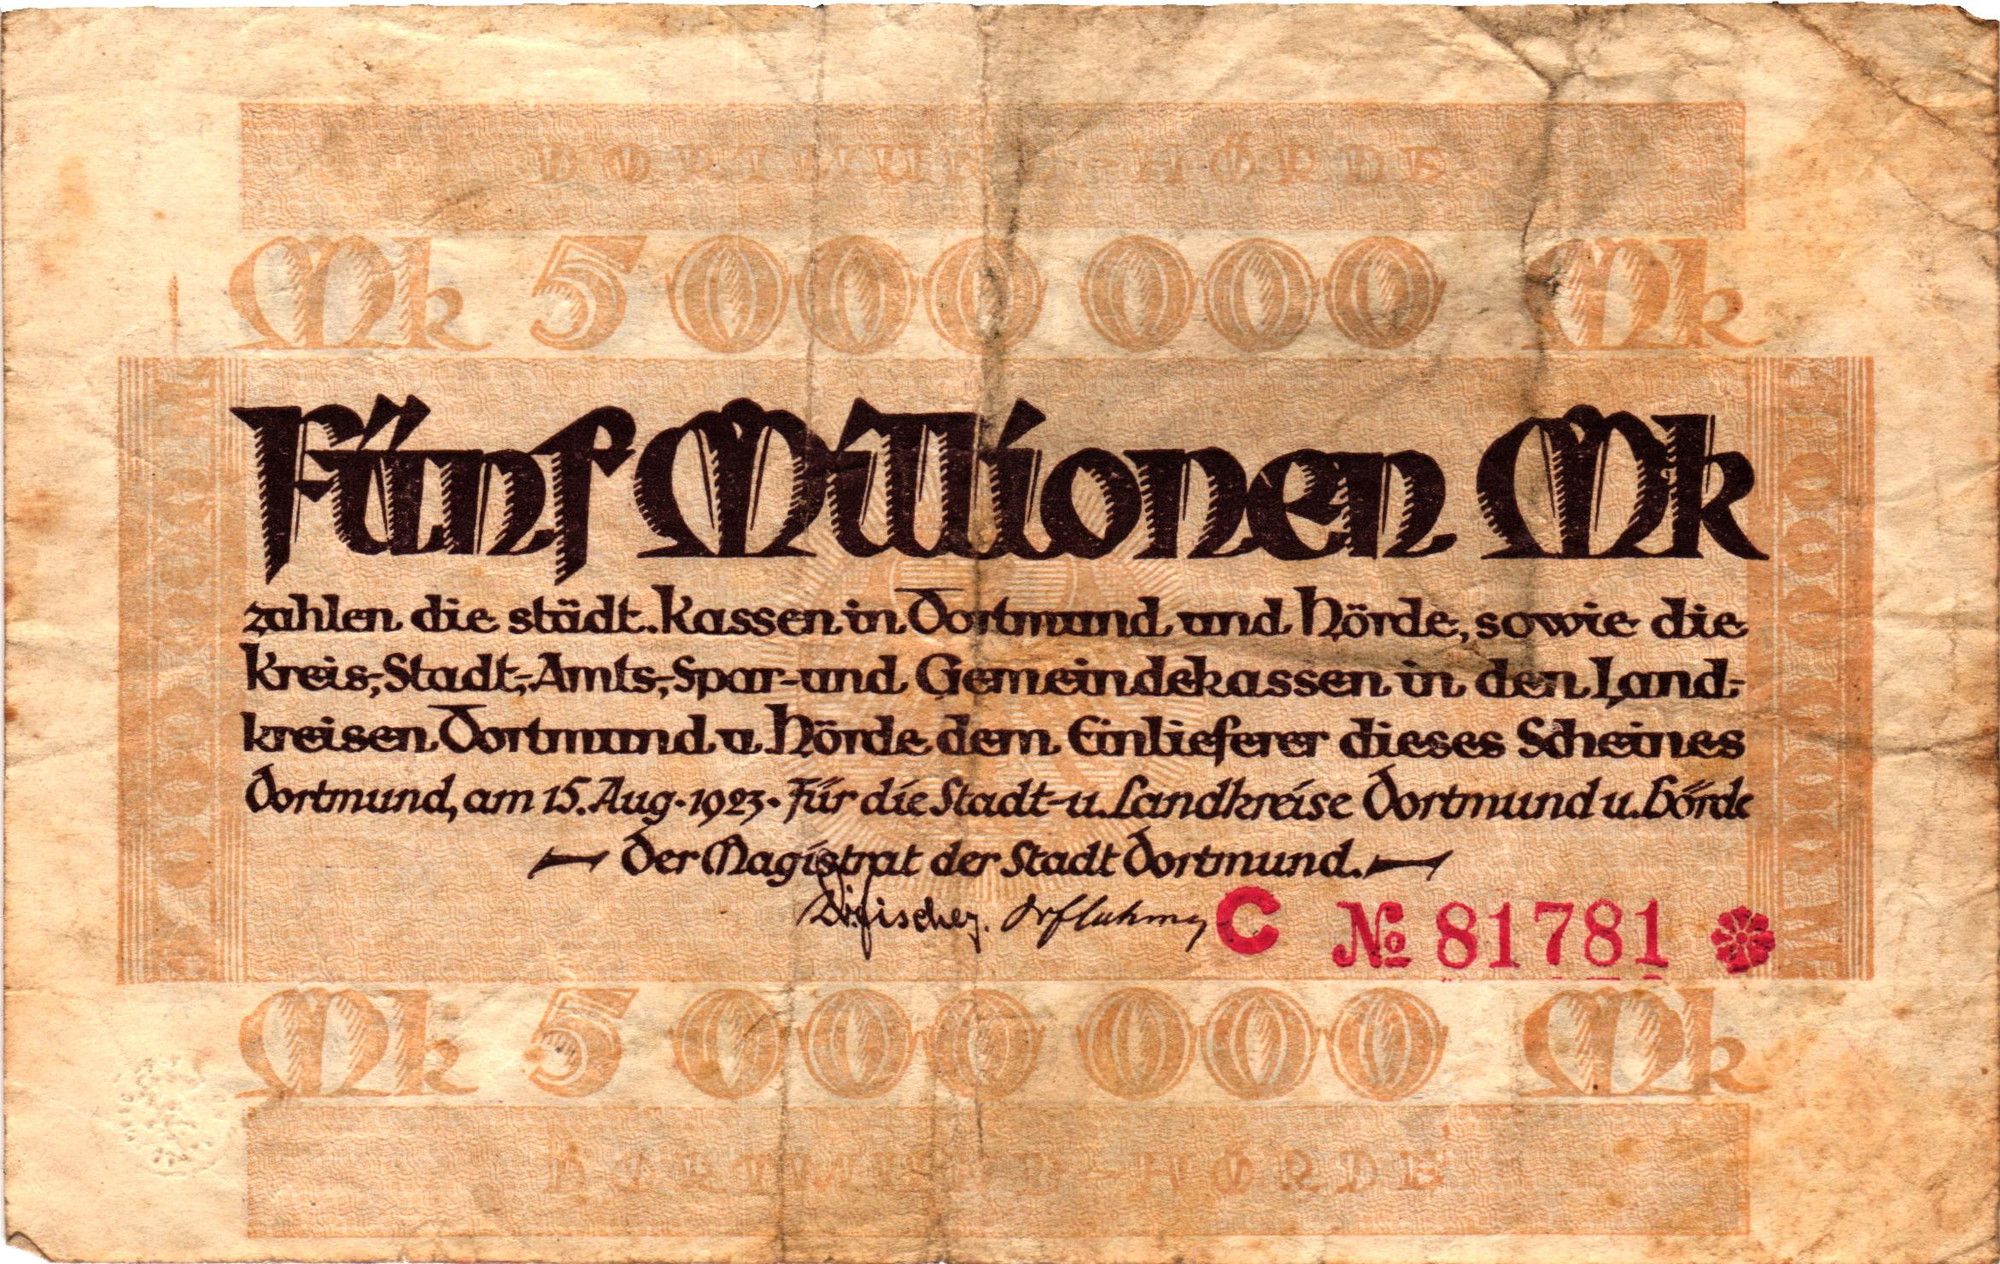 DORTMUND-HÖRDE
Mk 5000000 Mk
Fünf Millionen Mk
zahlen die städt. Kassen in Dortmund und Hörde, sowie die
Kreis-, Stadt-, Amts-, Spar- und Gemeindekassen in den Land-
kreisen Dortmund u. Hörde dem Einlieferer dieses Scheines
Dortmund, am 15. Aug. 1923. Für die Stadt- u. Landkreise Dortmund u. Hörde
Der Magistrat der Stadt Dortmund.
C № 81781
Mk 5000000 Mk
DORTMUND-HÖRDE